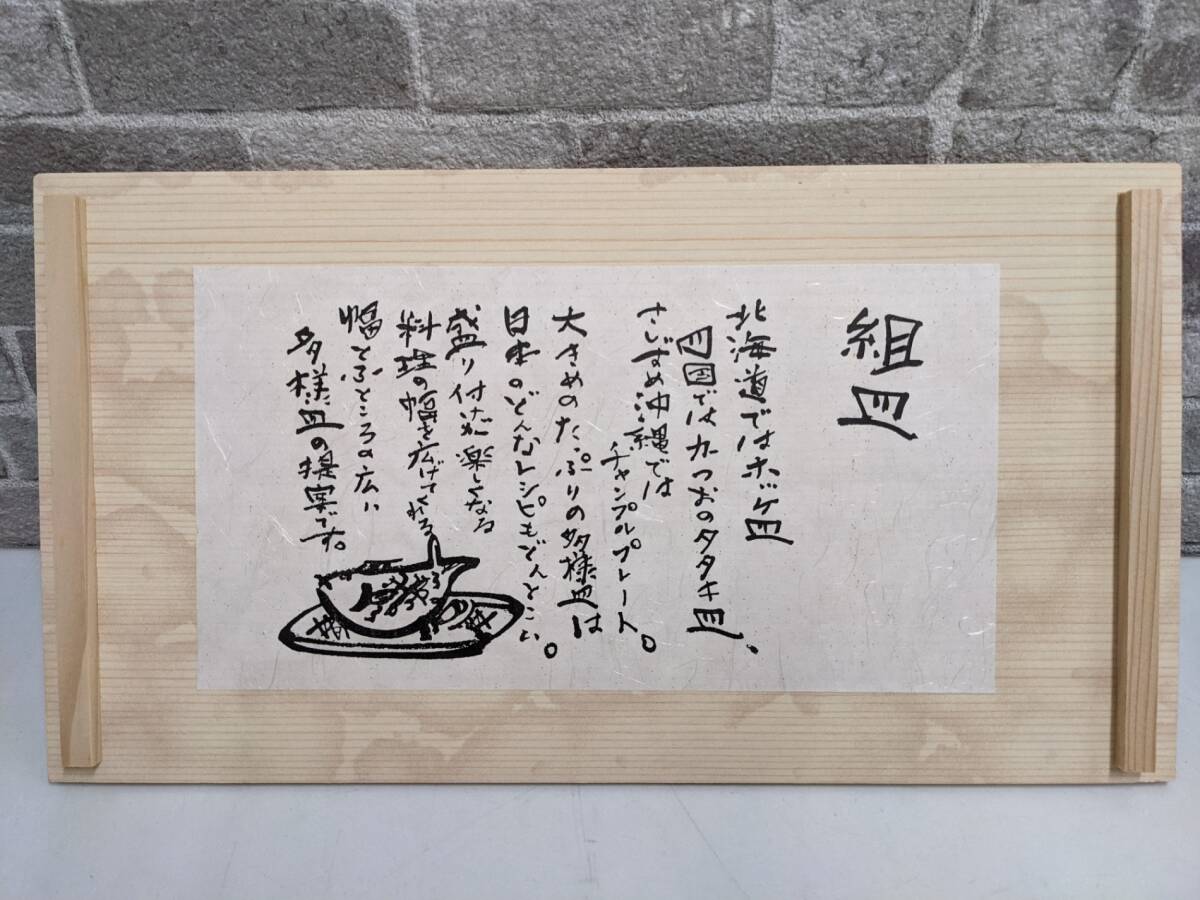 組皿
北海道ではホッケ皿
四国ではカつおのタタキ皿、
さしずめ沖縄では
チャンプルプレート。
大きめのたっぷりの多様皿は
日本のどんなレシピもどんとこい。
盛り付けが楽しくなる
料理の幅を広げてくれる
幅とふところの広い
多様皿の提案です。